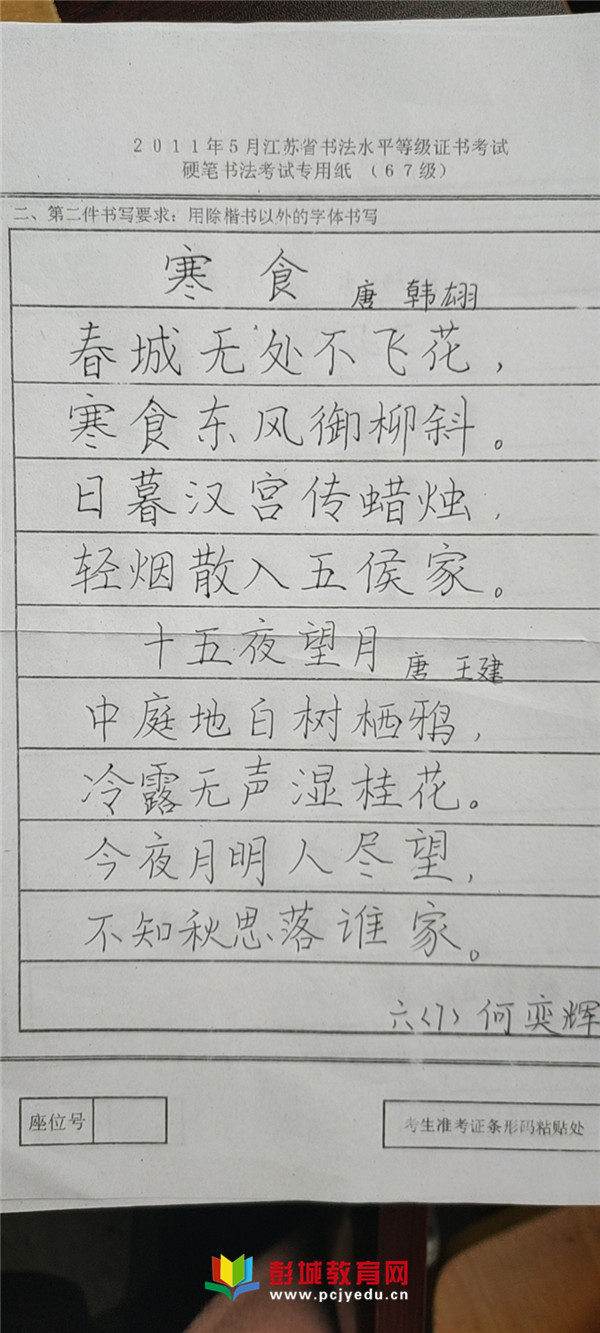 2011年5月江苏省书法水平等级证书考试
硬笔书法考试专用纸（67级）
二、第二件书写要求：用除楷书以外的字体书写
寒食
唐 韩翃
春城无处不飞花，
寒食东风御柳斜。
日暮汉宫传蜡烛，
轻烟散入五侯家。
十五夜望月
唐 王建
中庭地白树栖鸦，
冷露无声湿桂花。
今夜月明人尽望，
不知秋思落谁家。
六〈7〉何奕辉
座位号
考生准考证条形码粘贴处
彭城教育网
www.pcjyedu.cn